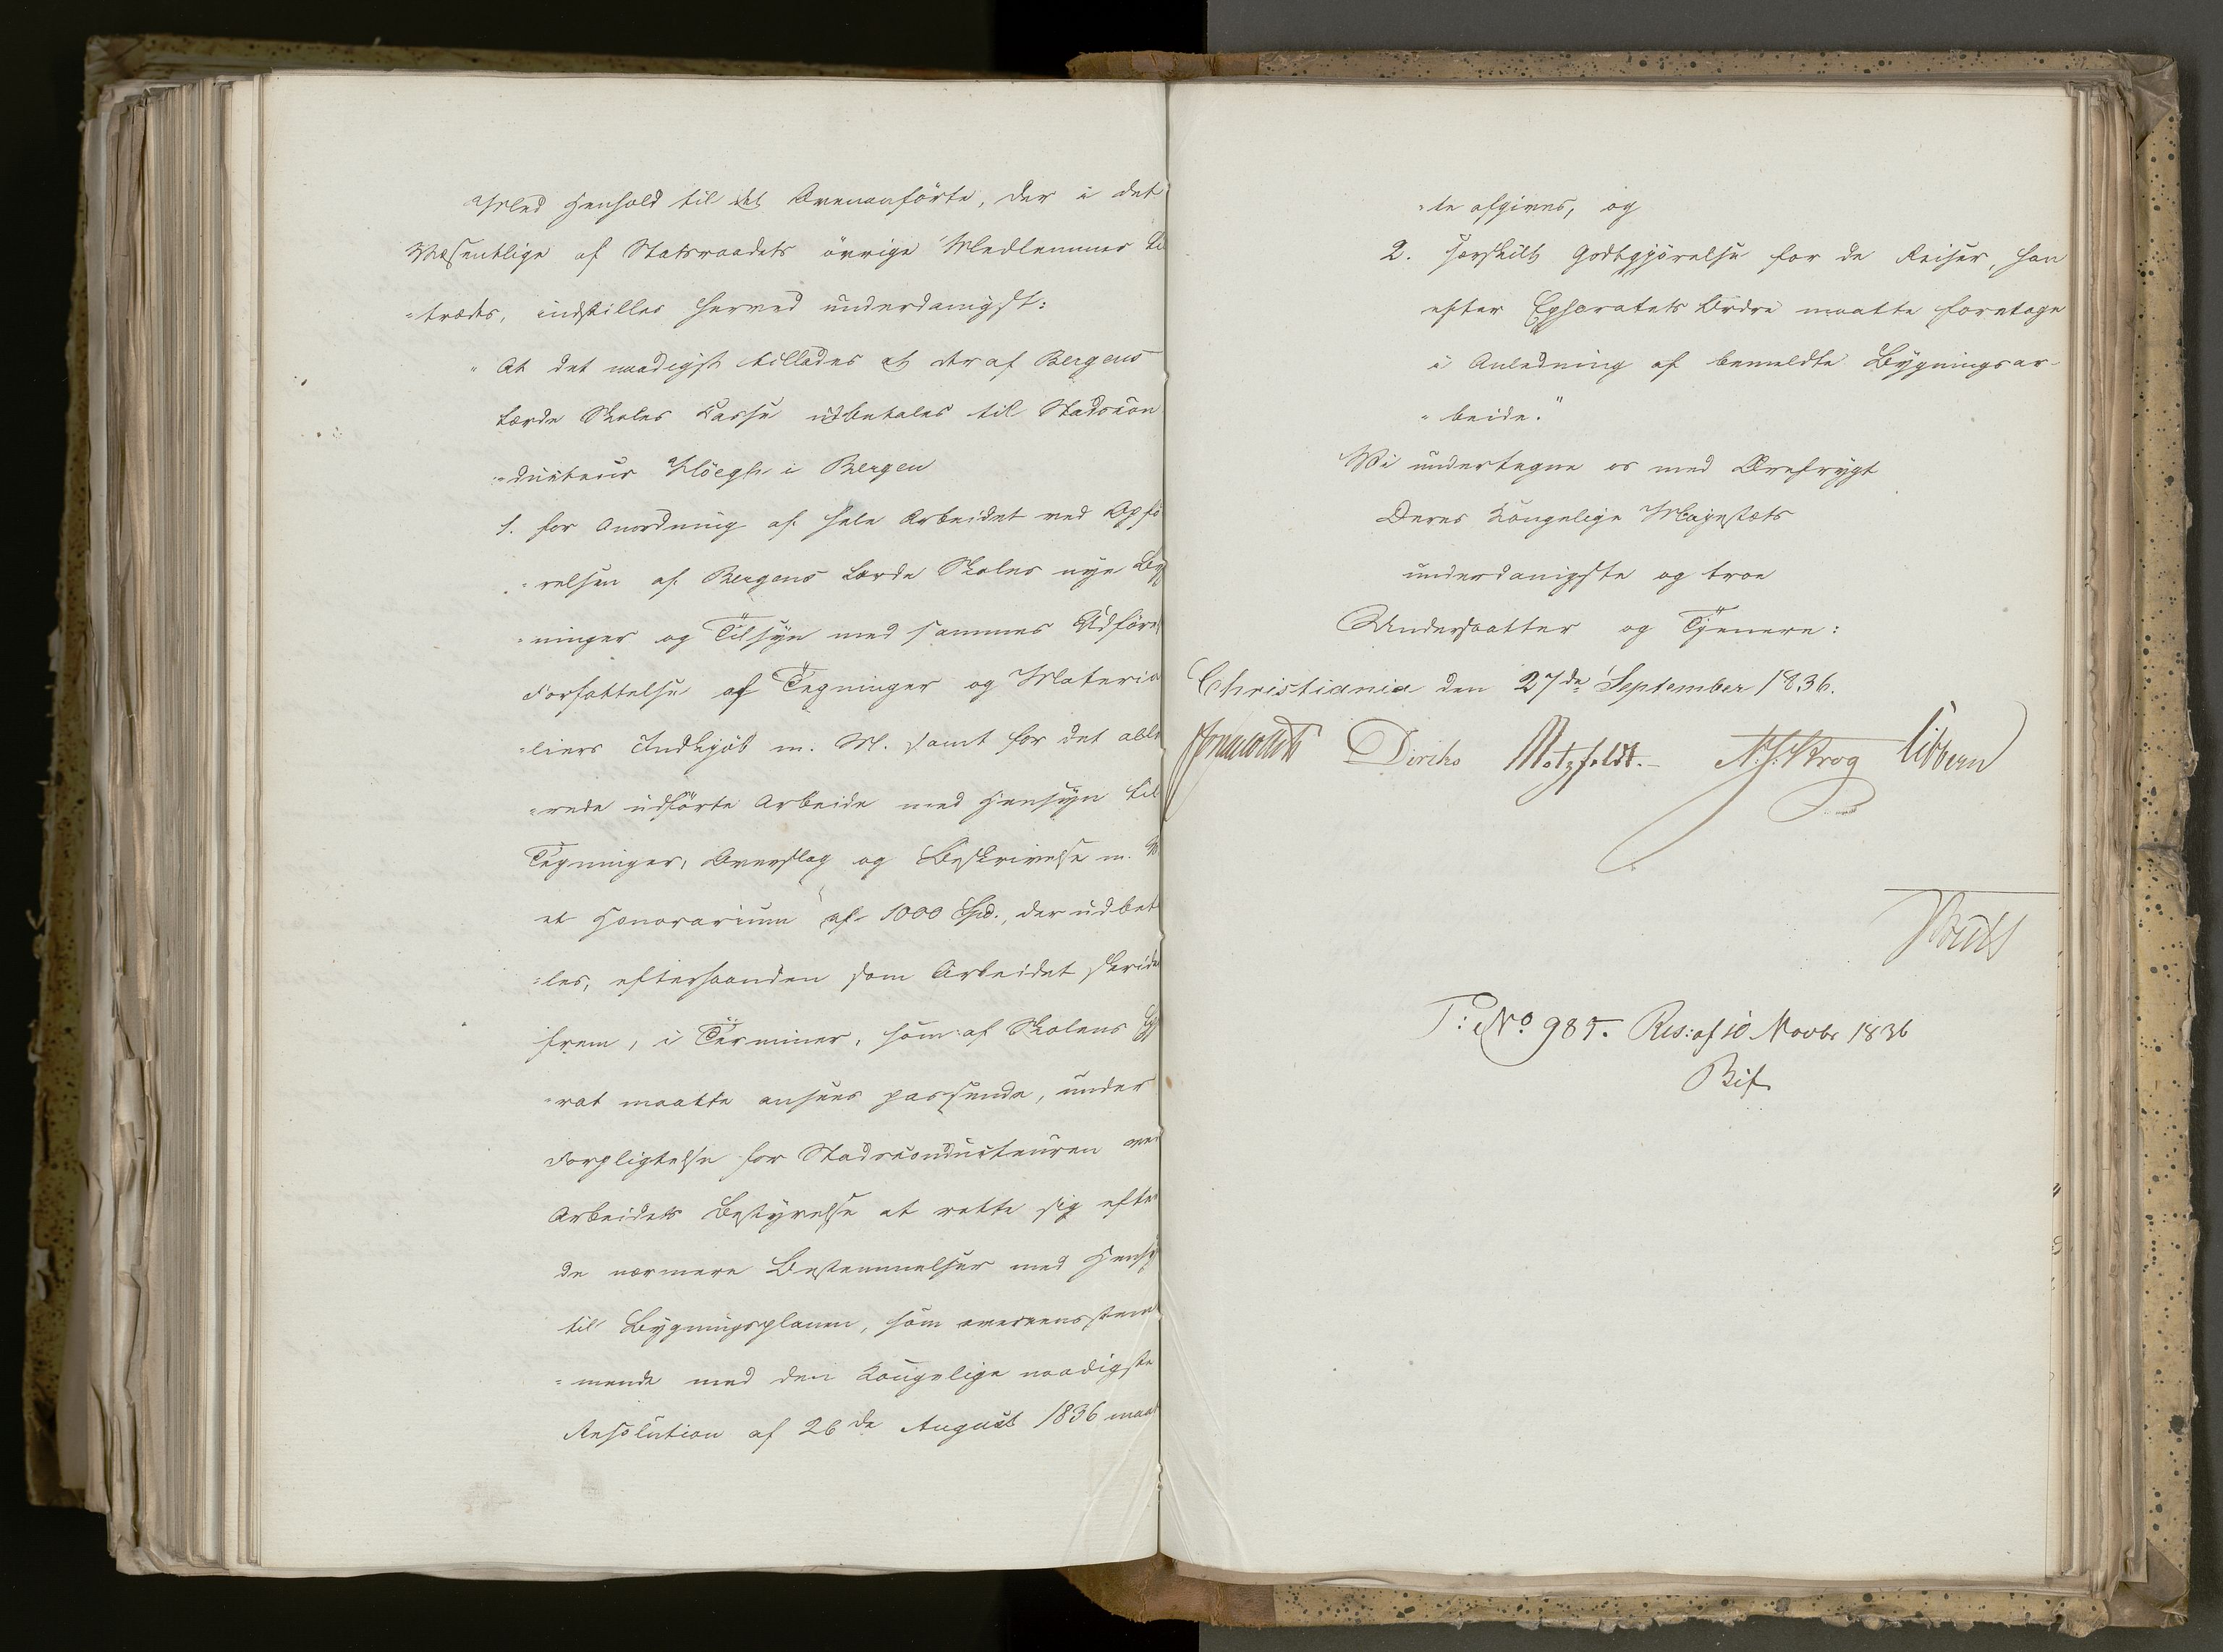 Med Henhold til det Ovenanførte, der i det
Væsentlige af Statsraadets øvrige Medlemmer til
-trædes, indstilles herved underdanigst:
"At det naadigst tillades at der af Bergens
lærde Skoles Casse udbetales til Stadscon
-ducteur Bloegh i Bergen
1. for Anordning af hele Arbeidet ved Opfø
-relsen af Bergens lærde Skoles nye Byg
-ninger og Tilsyn med sammes Udførel
Forfattelse af Tegninger og Materia
-liers Indkjøb m. M. samt for det alle
-rede udførte Arbeide med Hensyn til
Tegninger, Overslag og Beskrivelse m. M
et Honorarium af 1000 Spd., der udbet
-les, efterhaanden som Arbeidet skride
frem, i Terminer, som af Skolens Eph
-rat maatte ansees passende, under
Forpligtelse for Stadsconducteuren ved
Arbeidets Bestyrelse at rette sig efter
de nærmere Bestemmelser med Hensy
til Bygningsplanen, som overeensstem
-mende med den Kongelige naadigste
Resolution af 26de August 1836 maat
-te afgives, og
2. særskilt Godtgjørelse for de Reiser, han
efter Ephoratets Ordre maatte foretage
i Anledning af bemeldte Bygningsar-
-beide."
Vi undertegne os med Ærefrygt
Deres Kongelige Majestæts
underdanigste og troe
Undersaatter og Tjenere:
Christiania den 27de September 1836.
Diriks Motzfeldt. N. J. Krog Sibbern
P: No 985. Res: af 10 Novbr 1836